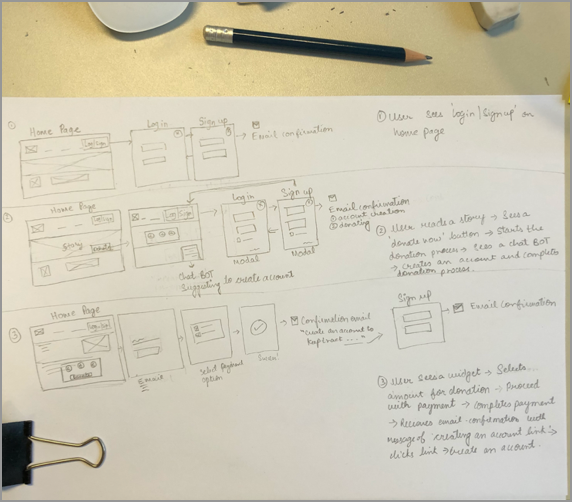 ①
Home Page
Login
Sign up
Email confirmation
① User sees 'Login | Signup' on
home page
②
Home Page
Story
Donate
Login
Sign up
Modal
Modal
Email confirmation
① account creation
② donating
Chat BOT
Suggesting to create account
② User reads a story → Sees a
'donate now' button → Starts the
donation process → Sees a chat BOT
→ Creates an account and completes
donation process.
③
Home Page
Email
Select Payment
option
Confirmation email
"create an account to
kept track .... "
Sign up
Email Confirmation
③ User sees a widget → Selects...
amount for donation → Proceed
with payment → completes payment
→ Receives email confirmation with
message of creating an account link →
clicks link → create an account.